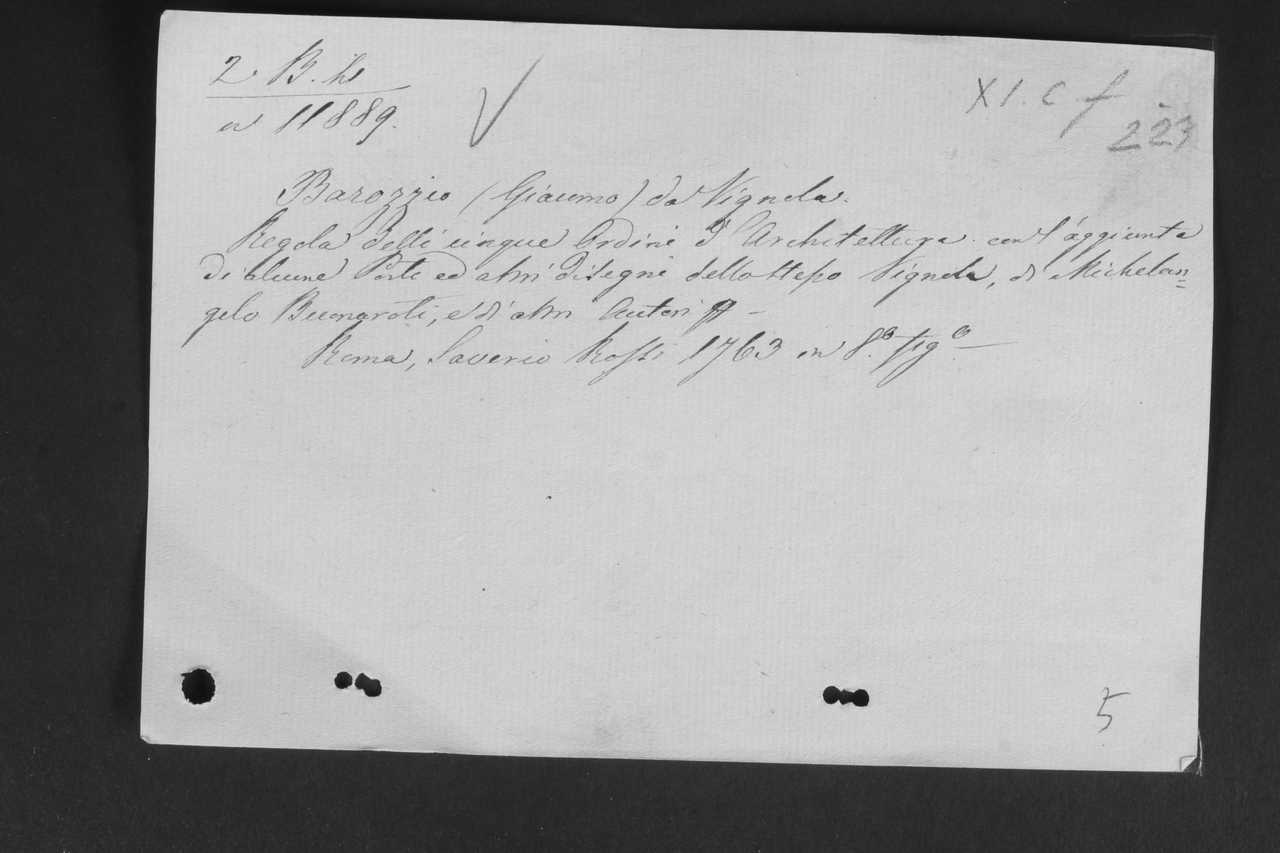 2. B. h
11889.
XI. C f
223
Barozzio (Giacomo) da Vignola.
Regola delli cinque Ordini d'Architettura con l'aggiunta
di alcune Porte ed altri disegni dello stesso Vignola, di Michelan=
gelo Buonaroti, e di altri Autori
Roma, Saverio Rossi 1763 in 8.o fig.o
5